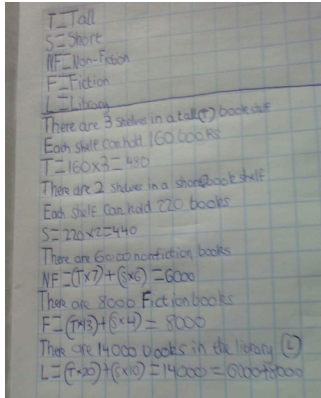 T=Tall
S=Short
NF=Non-Fiction
F=Fiction
L=Library
There are 3 shelves in a tall(T) book shelf
Each shelf can hold 160 books
T=160x3=480
There are 2 shelves in a short book shelf
Each shelf can hold 220 books
S=220x2=440
There are 6000 nonfiction books
NF=(Tx7)+(Sx6)=6000
There are 8000 Fiction books
F=(Tx13)+(Sx4)=8000
There are 14000 books in the library (L)
L=(Tx20)+(Sx10)=14000=6000+8000